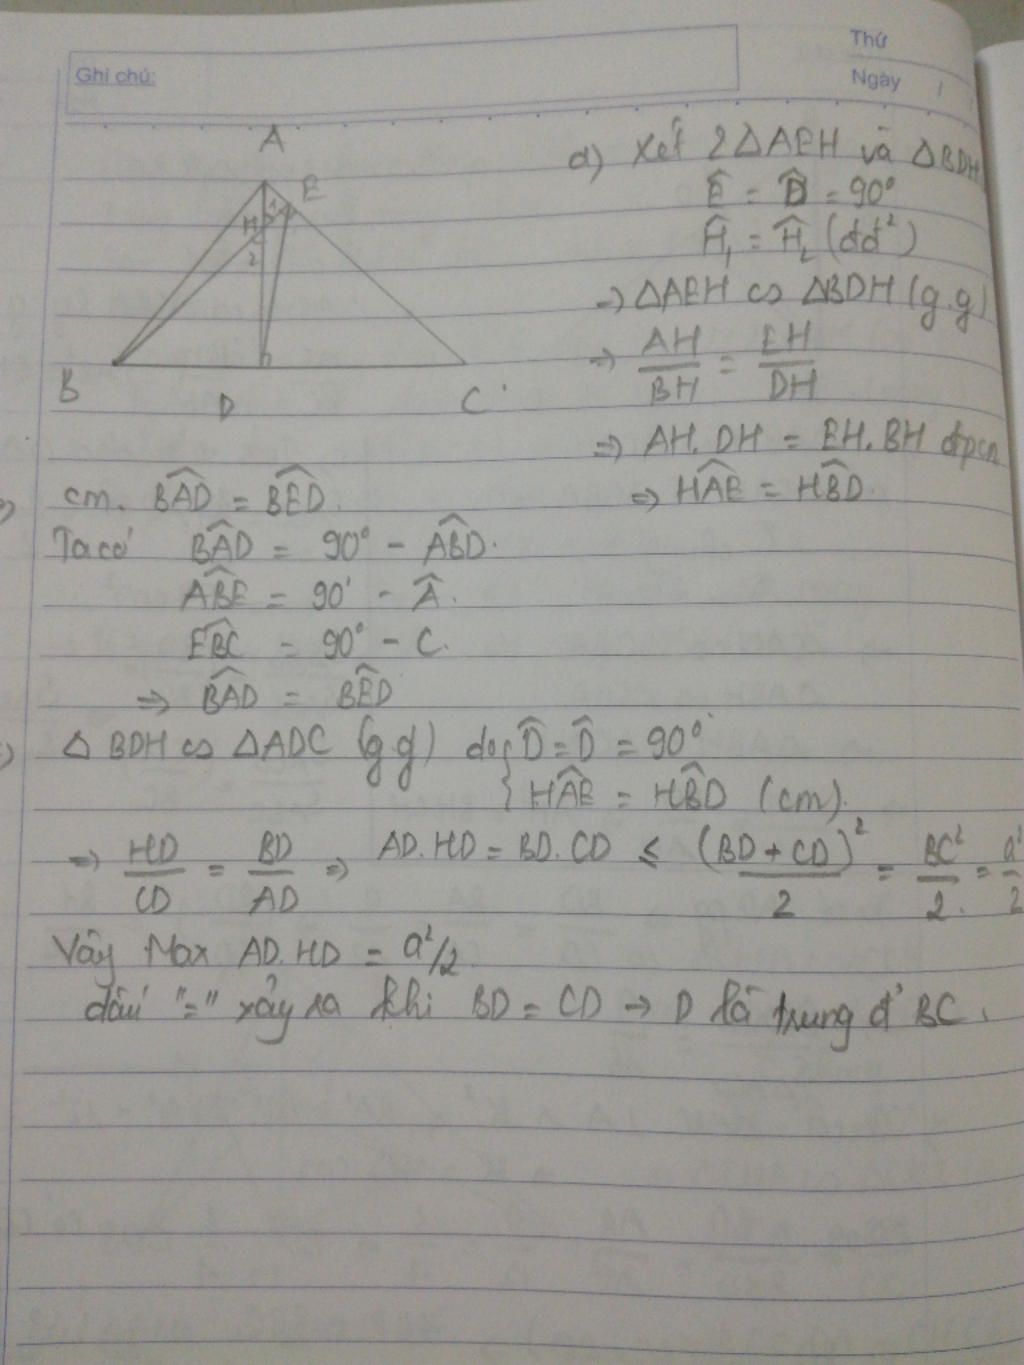 Thứ
Ghi chú:
Ngày / /
A
E
H
1
2
B
D
C
a) Xét 2 △AEH và △BDH
Ê = D̂ = 90°
Ĥ₁ = Ĥ₂ (đđ²)
=> △AEH ∽ △BDH (g.g)
=> AH/BH = EH/DH
=> AH. DH = EH. BH đpcm
=> HÂE = HB̂D.
cm. BÂD = BÊD.
Ta có BÂD = 90° - AB̂D.
AB̂E = 90' - Â.
EB̂C = 90° - C.
=> BÂD = BÊD
△ BDH ∽ △ADC (g.g) do { D̂ = D̂ = 90°
HÂE = HB̂D (cm).
=> HD/CD = BD/AD => AD. HD = BD. CD ≤ (BD + CD)²/2 = BC²/2. = a²/2
Vậy Max AD. HD = a²/2
dấu "=" xảy ra khi BD = CD -> D là trung đ' BC.